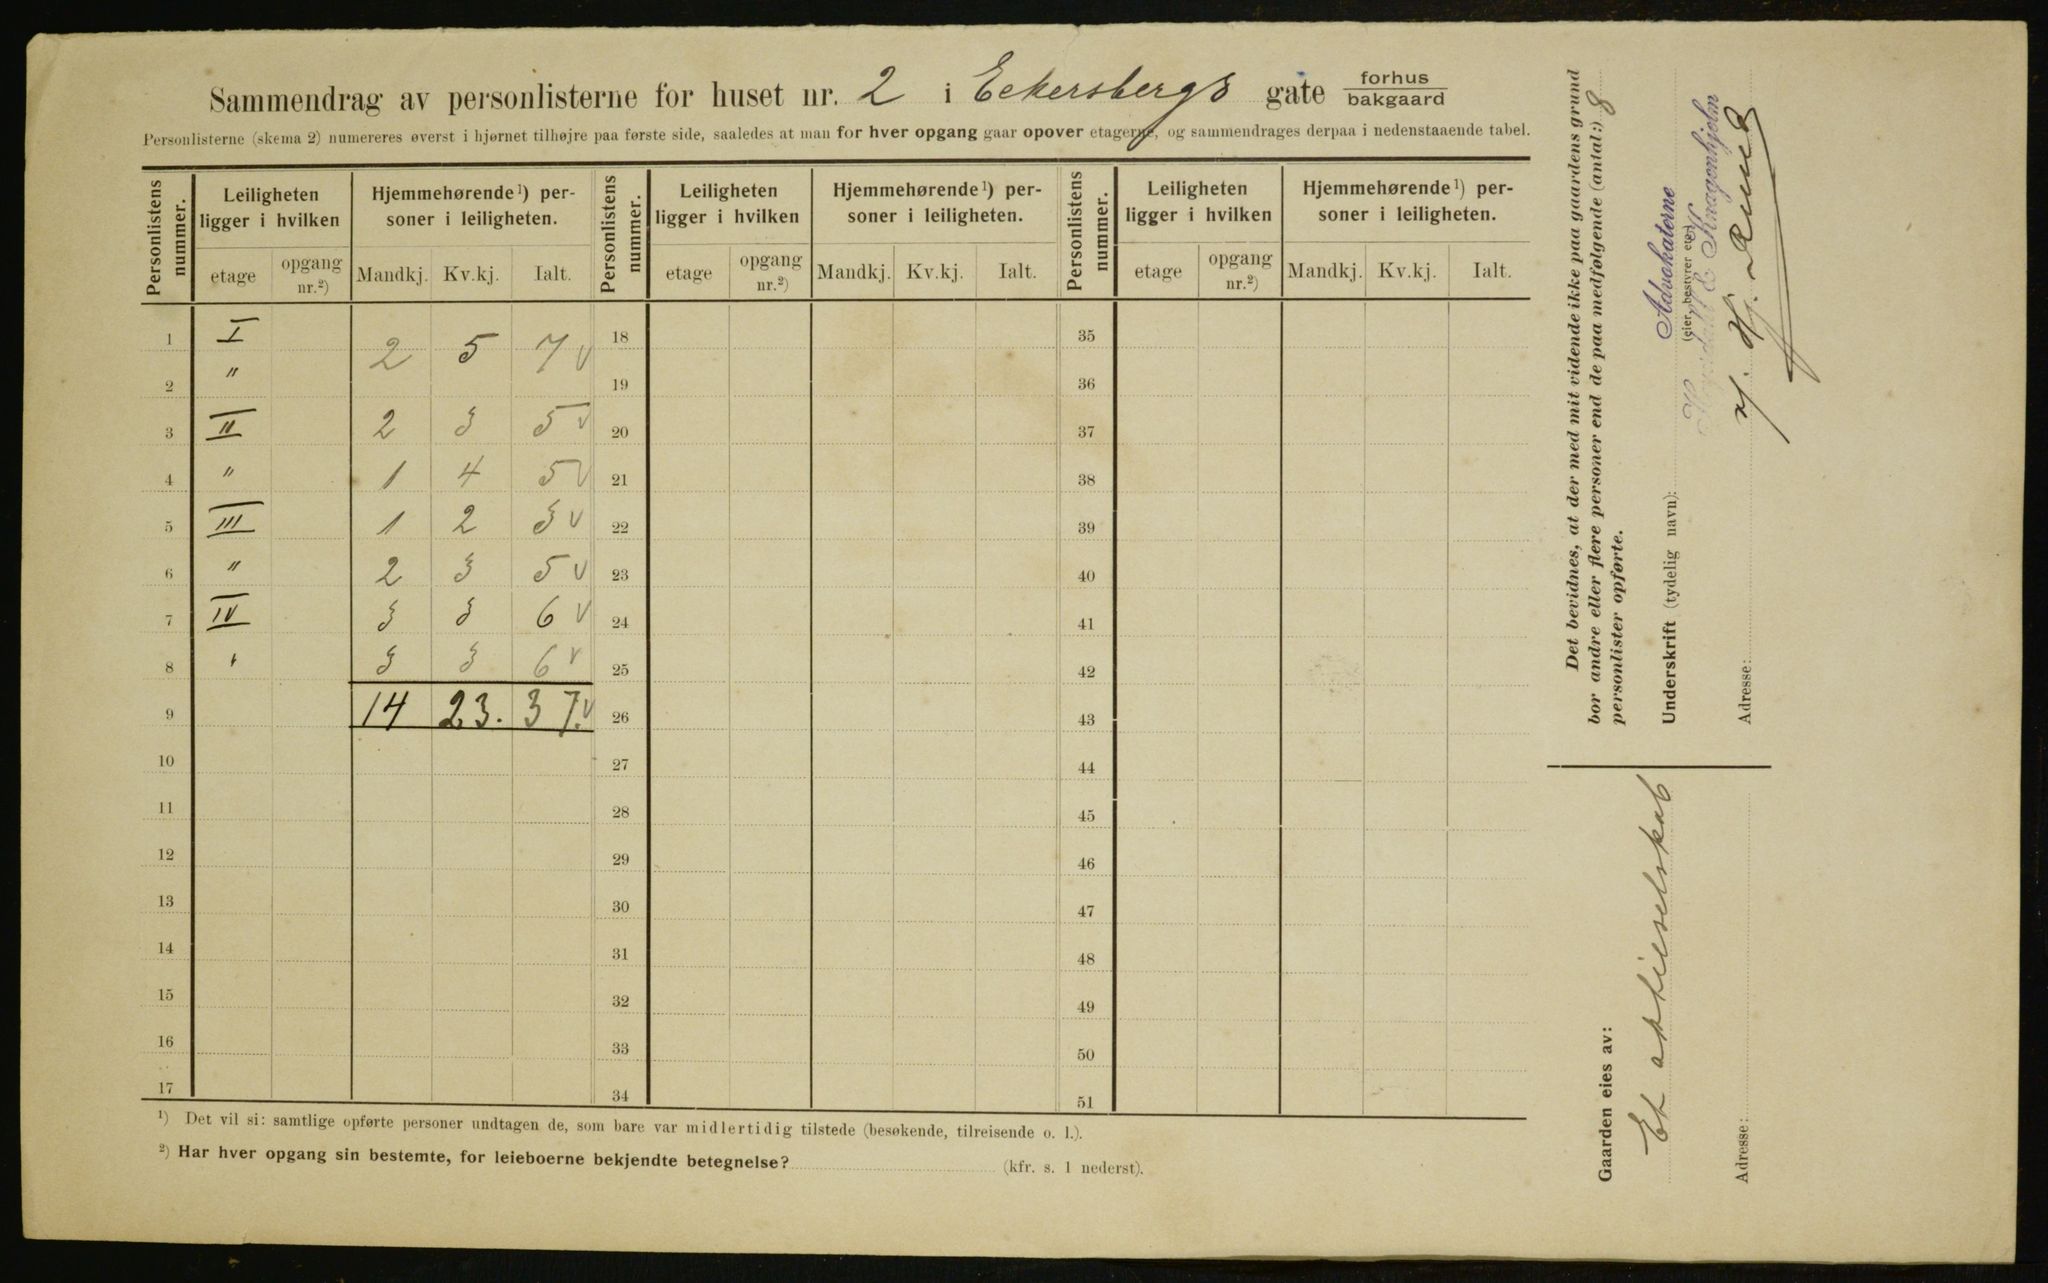 Sammendrag av personlisterne for huset nr. 2 i Eckersbergs gate forhus bakgaard
Personlisterne (skema 2) numereres øverst i hjørnet tilhøjre paa første side, saaledes at man for hver opgang gaar opover etagerne, og sammendrages derpaa i nedenstaaende tabel.
Personlistens nummer. Leiligheten ligger i hvilken Hjemmehørende¹) personer i leiligheten. Personlistens nummer. Leiligheten ligger i hvilken Hjemmehørende¹) personer i leiligheten. Personlistens nummer. Leiligheten ligger i hvilken Hjemmehørende¹) personer i leiligheten.
etage opgang nr.²) Mandkj. Kv.kj. Ialt. etage opgang nr.²) Mandkj. Kv.kj. Ialt. etage opgang nr.²) Mandkj. Kv.kj. Ialt.
1 I 2 5 7 v 18 35
2 " 19 36
3 II 2 3 5 v 20 37
4 " 1 4 5 v 21 38
5 III 1 2 3 v 22 39
6 " 2 3 5 v 23 40
7 IV 3 3 6 v 24 41
8 " 3 3 6 v 25 42
9 14 23. 37. v 26 43
10 27 44
11 28 45
12 29 46
13 30 47
14 31 48
15 32 49
16 33 50
17 34 51
¹) Det vil si: samtlige opførte personer undtagen de, som bare var midlertidig tilstede (besøkende, tilreisende o. l.).
²) Har hver opgang sin bestemte, for leieboerne bekjendte betegnelse? (kfr. s. 1 nederst).
Det bevidnes, at der med mit vidende ikke paa gaardens grund
bor andre eller flere personer end de paa medfølgende (antal:) 8
personlister opførte.
Advokaterne
Underskrift (tydelig navn): (eier, bestyrer etc.)
E Kragenhjelm
Adresse:
Gaarden eies av:
Et aktieselskab
Adresse: